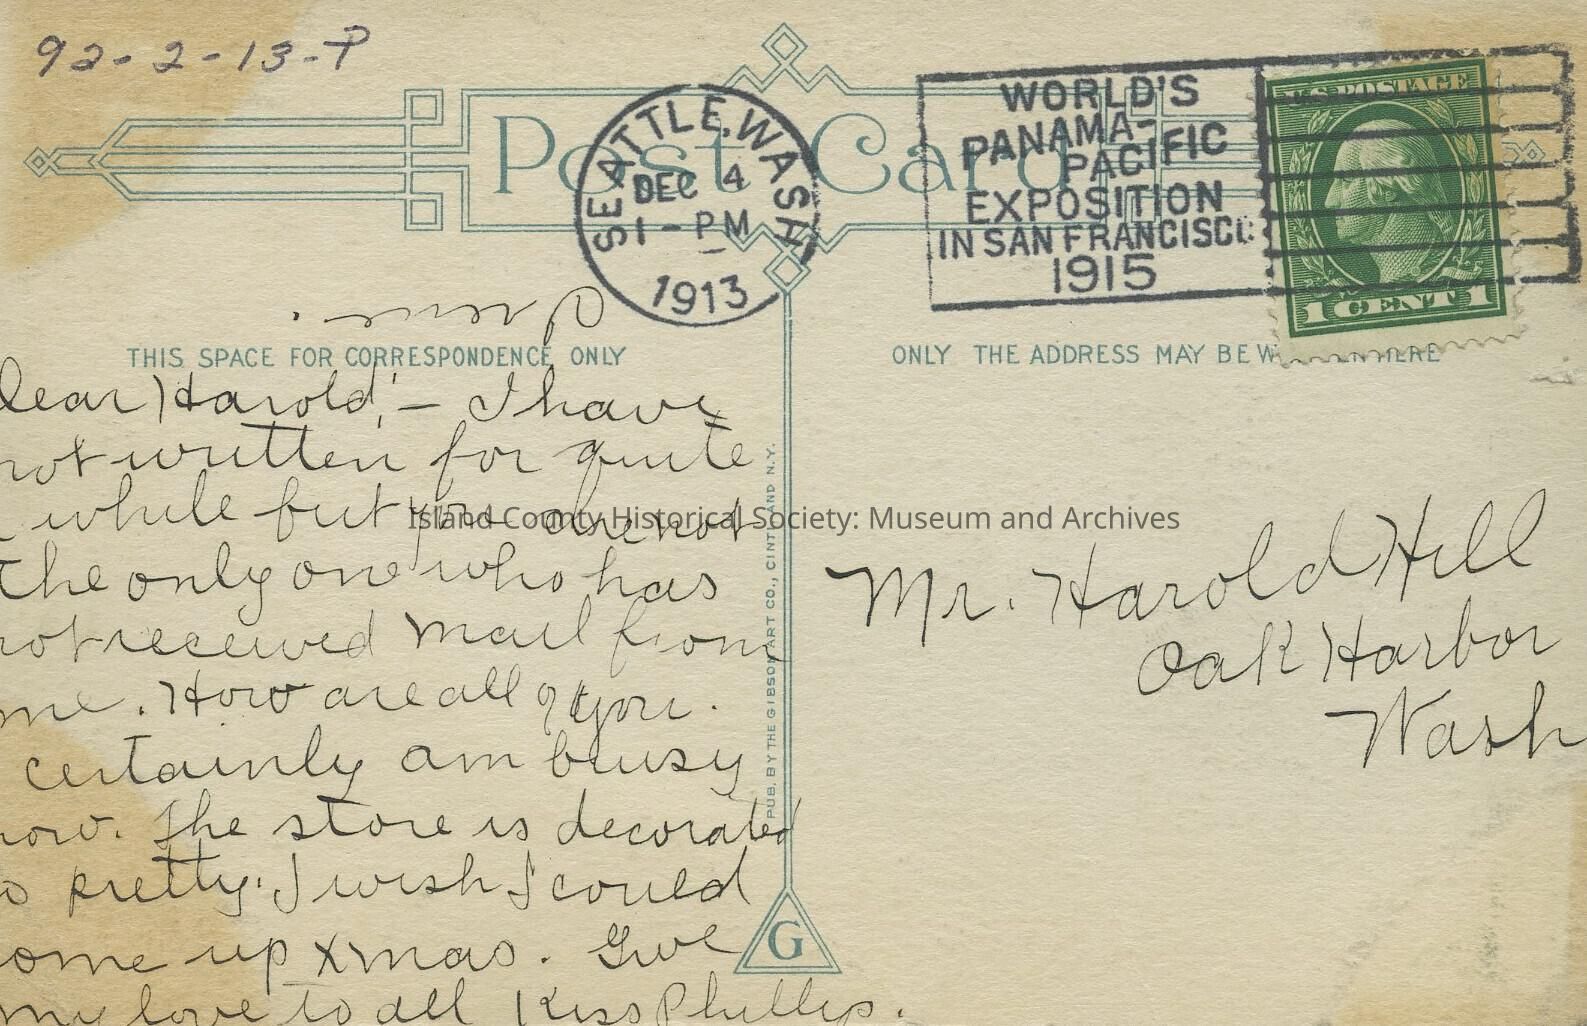 92-2-13-P
Post Card
SEATTLE, WASH
DEC 4
1-PM
1913
WORLD'S
PANAMA-
PACIFIC
EXPOSITION
IN SAN FRANCISCO
1915
U.S. POSTAGE
1 CENT 1
THIS SPACE FOR CORRESPONDENCE ONLY
ONLY THE ADDRESS MAY BE W HERE
Dear Harold,- I have
not written for quite
while but you are not
the only one who has
not received mail from
me. How are all of you.
certainly am buisy
now. The store is decorated
so pretty. I wish I could
come up Xmas. Give
my love to all Kiss Phillip.
PUB. BY THE GIBSON ART CO., CINTI AND N.Y.
G
Mr. Harold Hill
Oak Harbor
Wash
Island County Historical Society: Museum and Archives